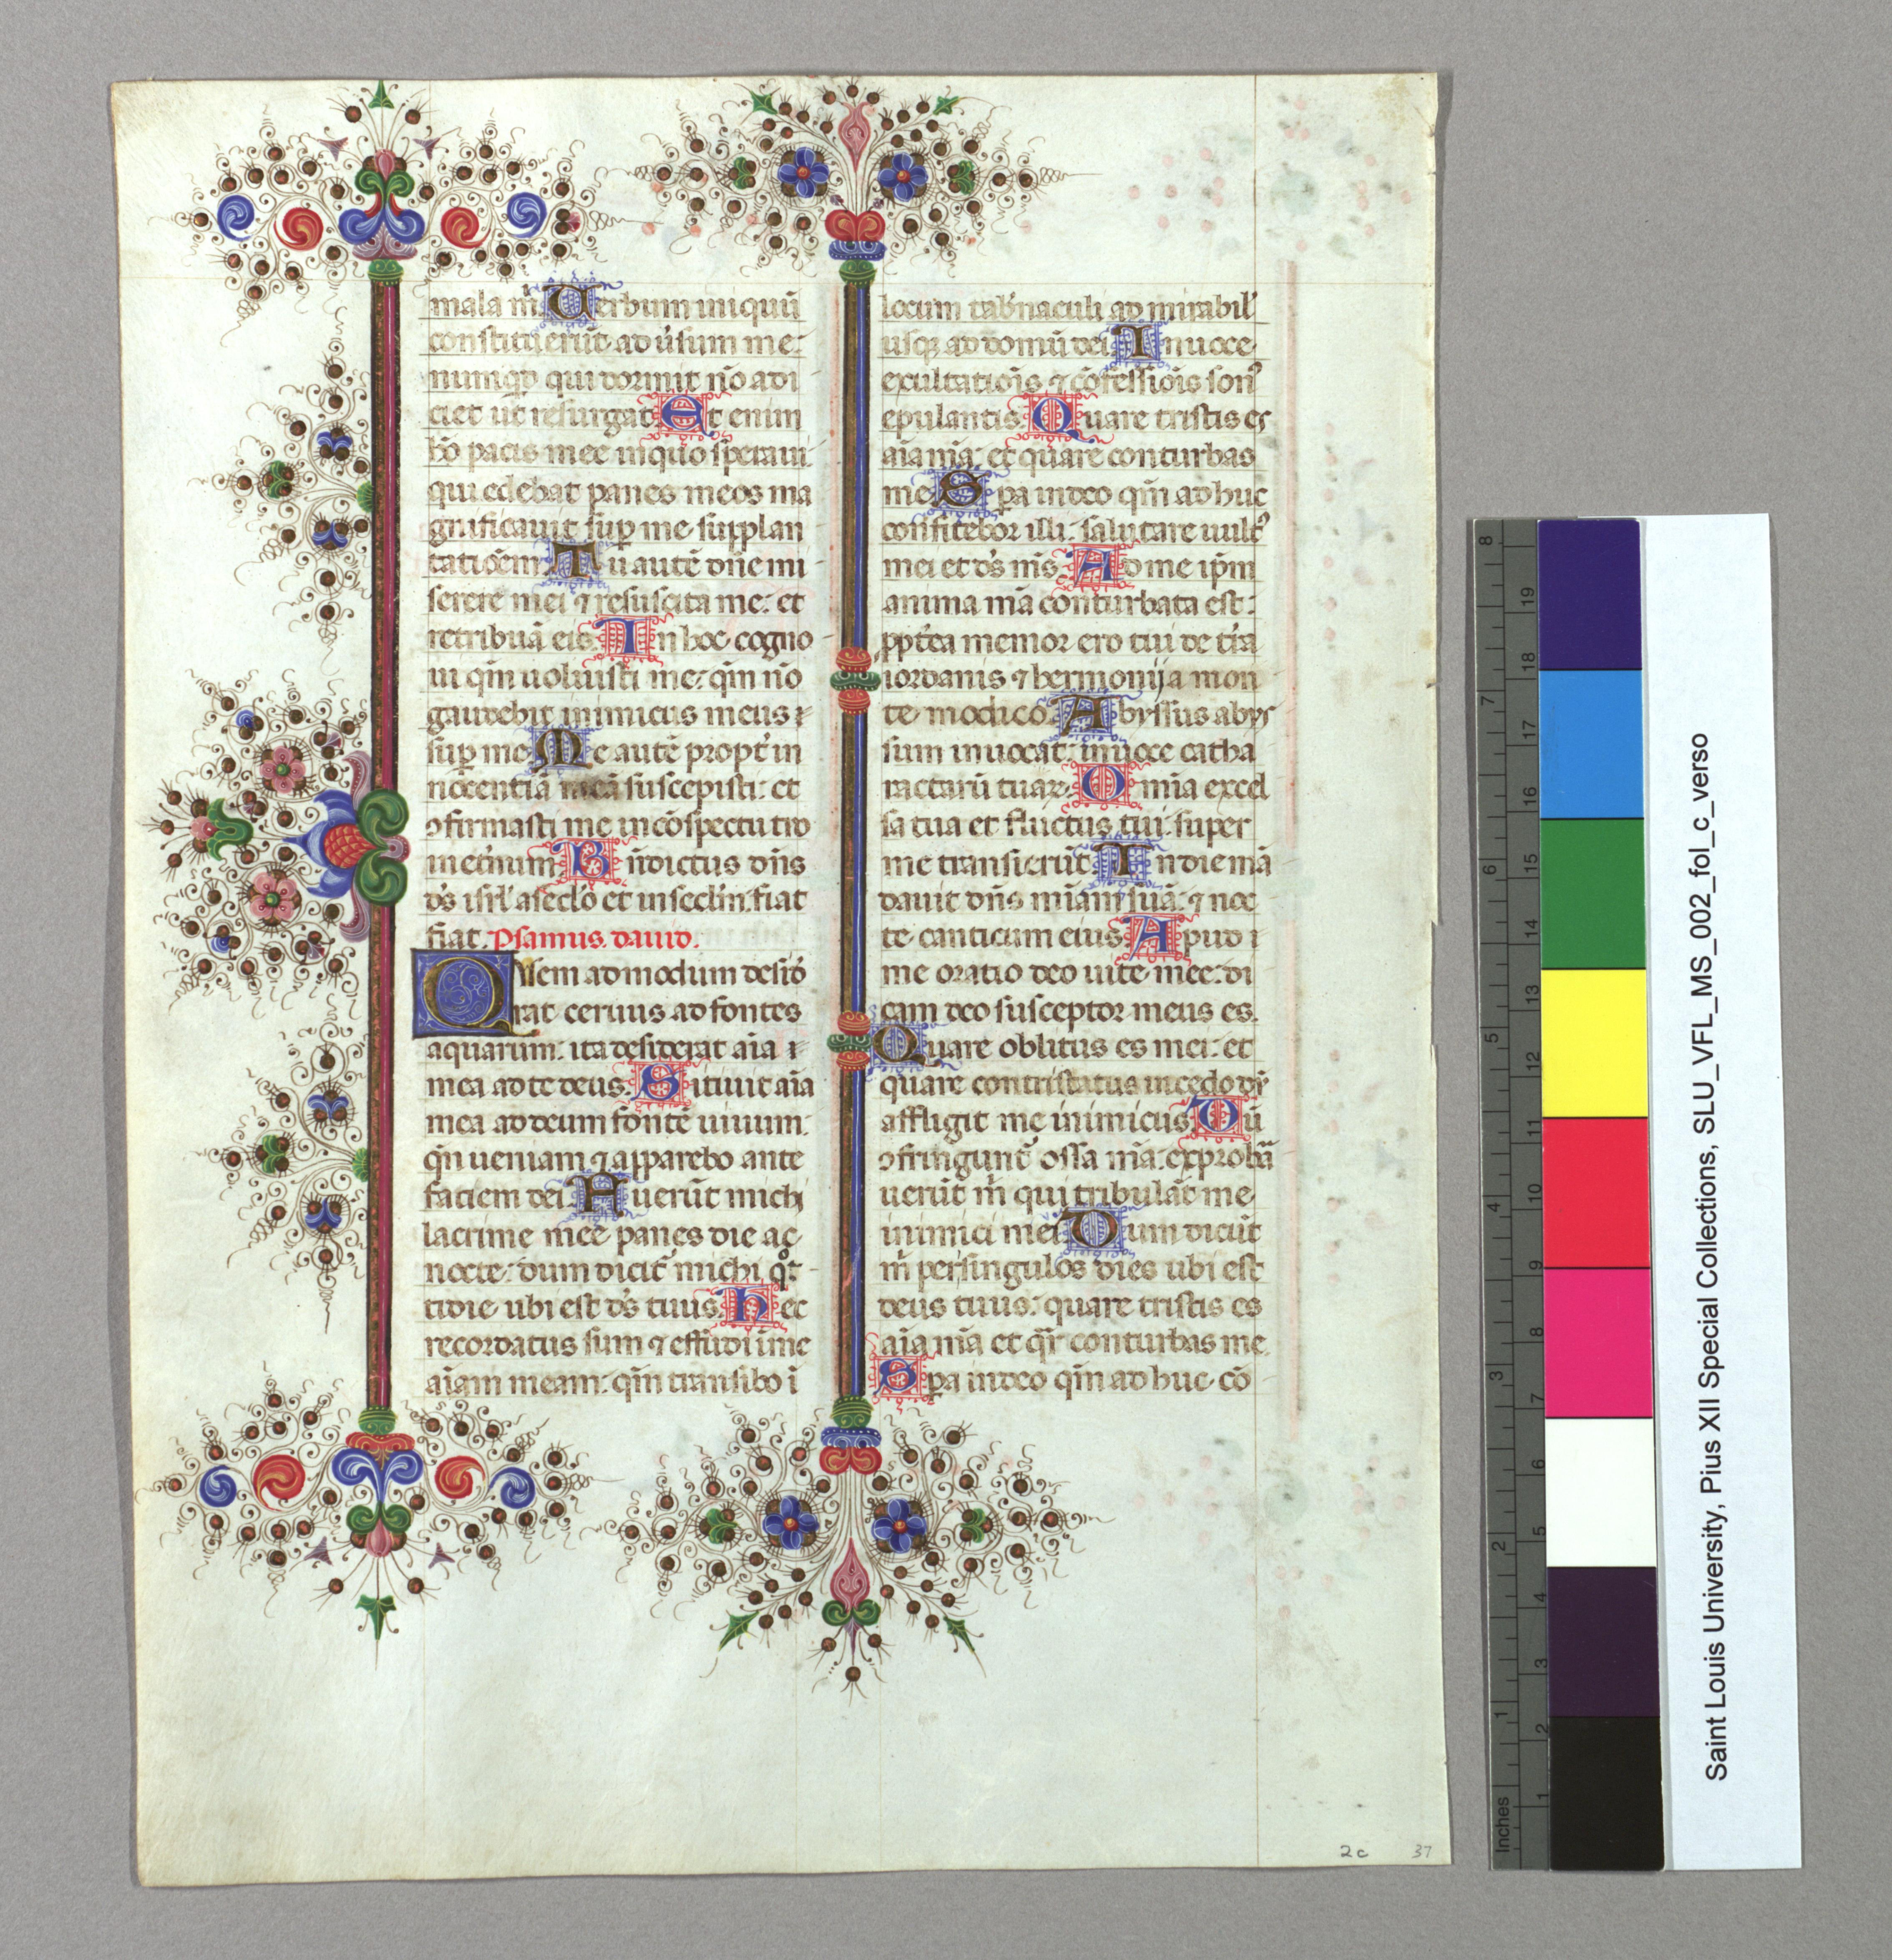 mala m̃. Verbum iniquũ
constituerũt adũsum me:
numqͥd qui dormit nõ adi
ciet ut resurgat. Et enim
hõ pacis mee in quo speraui:
qui edebat panes meos ma
gnificauit sup̱ me supplan
tatiõem. Tu autẽ dñe mi
serere mei ⁊ resuscita me: et
retribuã eis. In hoc cogno
ui qm̃ uoluisti me: qm̃ nõ
gaudebit inimicus meus
sup̱ me. Me autẽ propt̾ in
nocentiã meã suscepisti: et
ꝯfirmasti me in cõspectu tuo
inet̾num. Bñdictus dñs
ds̃ isrl̃ aseclõ et inseclm̃: fiat
fiat. Psamus. dauid.
Quem admodum desid̾
rat ceruus ad fontes
aquarum: ita desiderat aĩa
mea ad te deus. Sitiuit aĩa
mea ad deum fontẽ uiuum:
qñ ueniam ⁊ apparebo ante
faciem dei. Fuerũt michi
lacrime mee panes die ac
nocte: dum dicit̾ michi qͦt
tidie ubi est ds̃ tuus. Hec
recordatus sum ⁊ effudi ĩme
aĩam meam: qm̃ transibo ĩ
locum tab̾naculi admirabil̾
usqꝫ ad domũ dei. In uoce
exultatiõis ⁊ cõfessiõis son᷒
epulantis. Quare tristis es
aĩa mã: et quare conturbas
me. Sp̱a indeo qm̃ ad huc
confitebor illi: salutare uult᷒
mei et ds̃ ms̃. Ad me ip̃m
anima mã conturbata est:
ppt̾ea memor ero tui de t̾ra
iordanis ⁊ hermonija mon
te modico. Abyssus abys
sum inuocat: inuoce catha
ractarũ tuaꝝ. Omĩa excel
sa tua et fluctus tui: super
me transierũt. In die mã
dauit dñs miãm suã: ⁊ noc
te canticum eius. Apud
me oratio deo uite mee: di
cam deo susceptor meus es.
Quare oblitus es mei: et
quare contristatus incedo dũ
affligit me inimicus. Dũ
ꝯfringunt̾ ossa mã: exprobã
uerũt m̃ qui tribulãt me
inimici mei. Dum dicũt
m̃ persingulos dies ubi est
deus tuus: quare tristis es
aĩa mã et qr̃ conturbas me.
Sp̱a indeo qm̃ ad huc cõ
2c 37
Saint Louis University, Pius XII Special Collections, SLU_VFL_MS_002_fol_c_verso
Inches 1 2 3 4 5 6 7 8
1 2 3 4 5 6 7 8 9 10 11 12 13 14 15 16 17 18 19